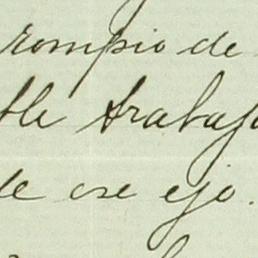 rompio de
ble trabajo
de ese ejo.